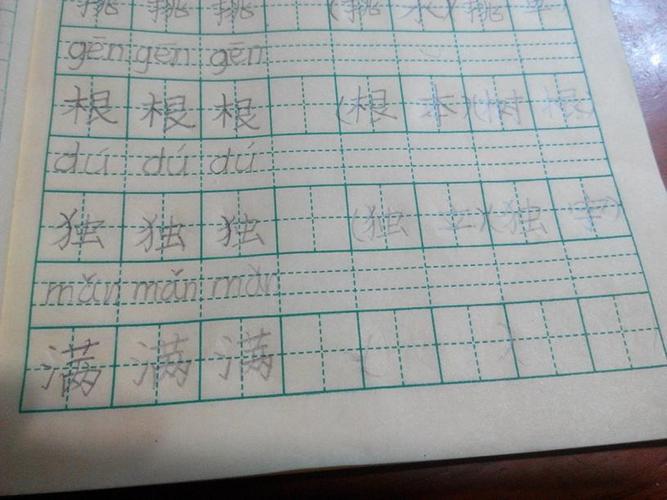 挑 挑 挑 (挑 水)(挑
gēn gēn gēn
根 根 根 (根 本)(树 根)
dú dú dú
独 独 独 (独 立)(独 字)
mǎn mǎn mǎn
满 满 满 ( )